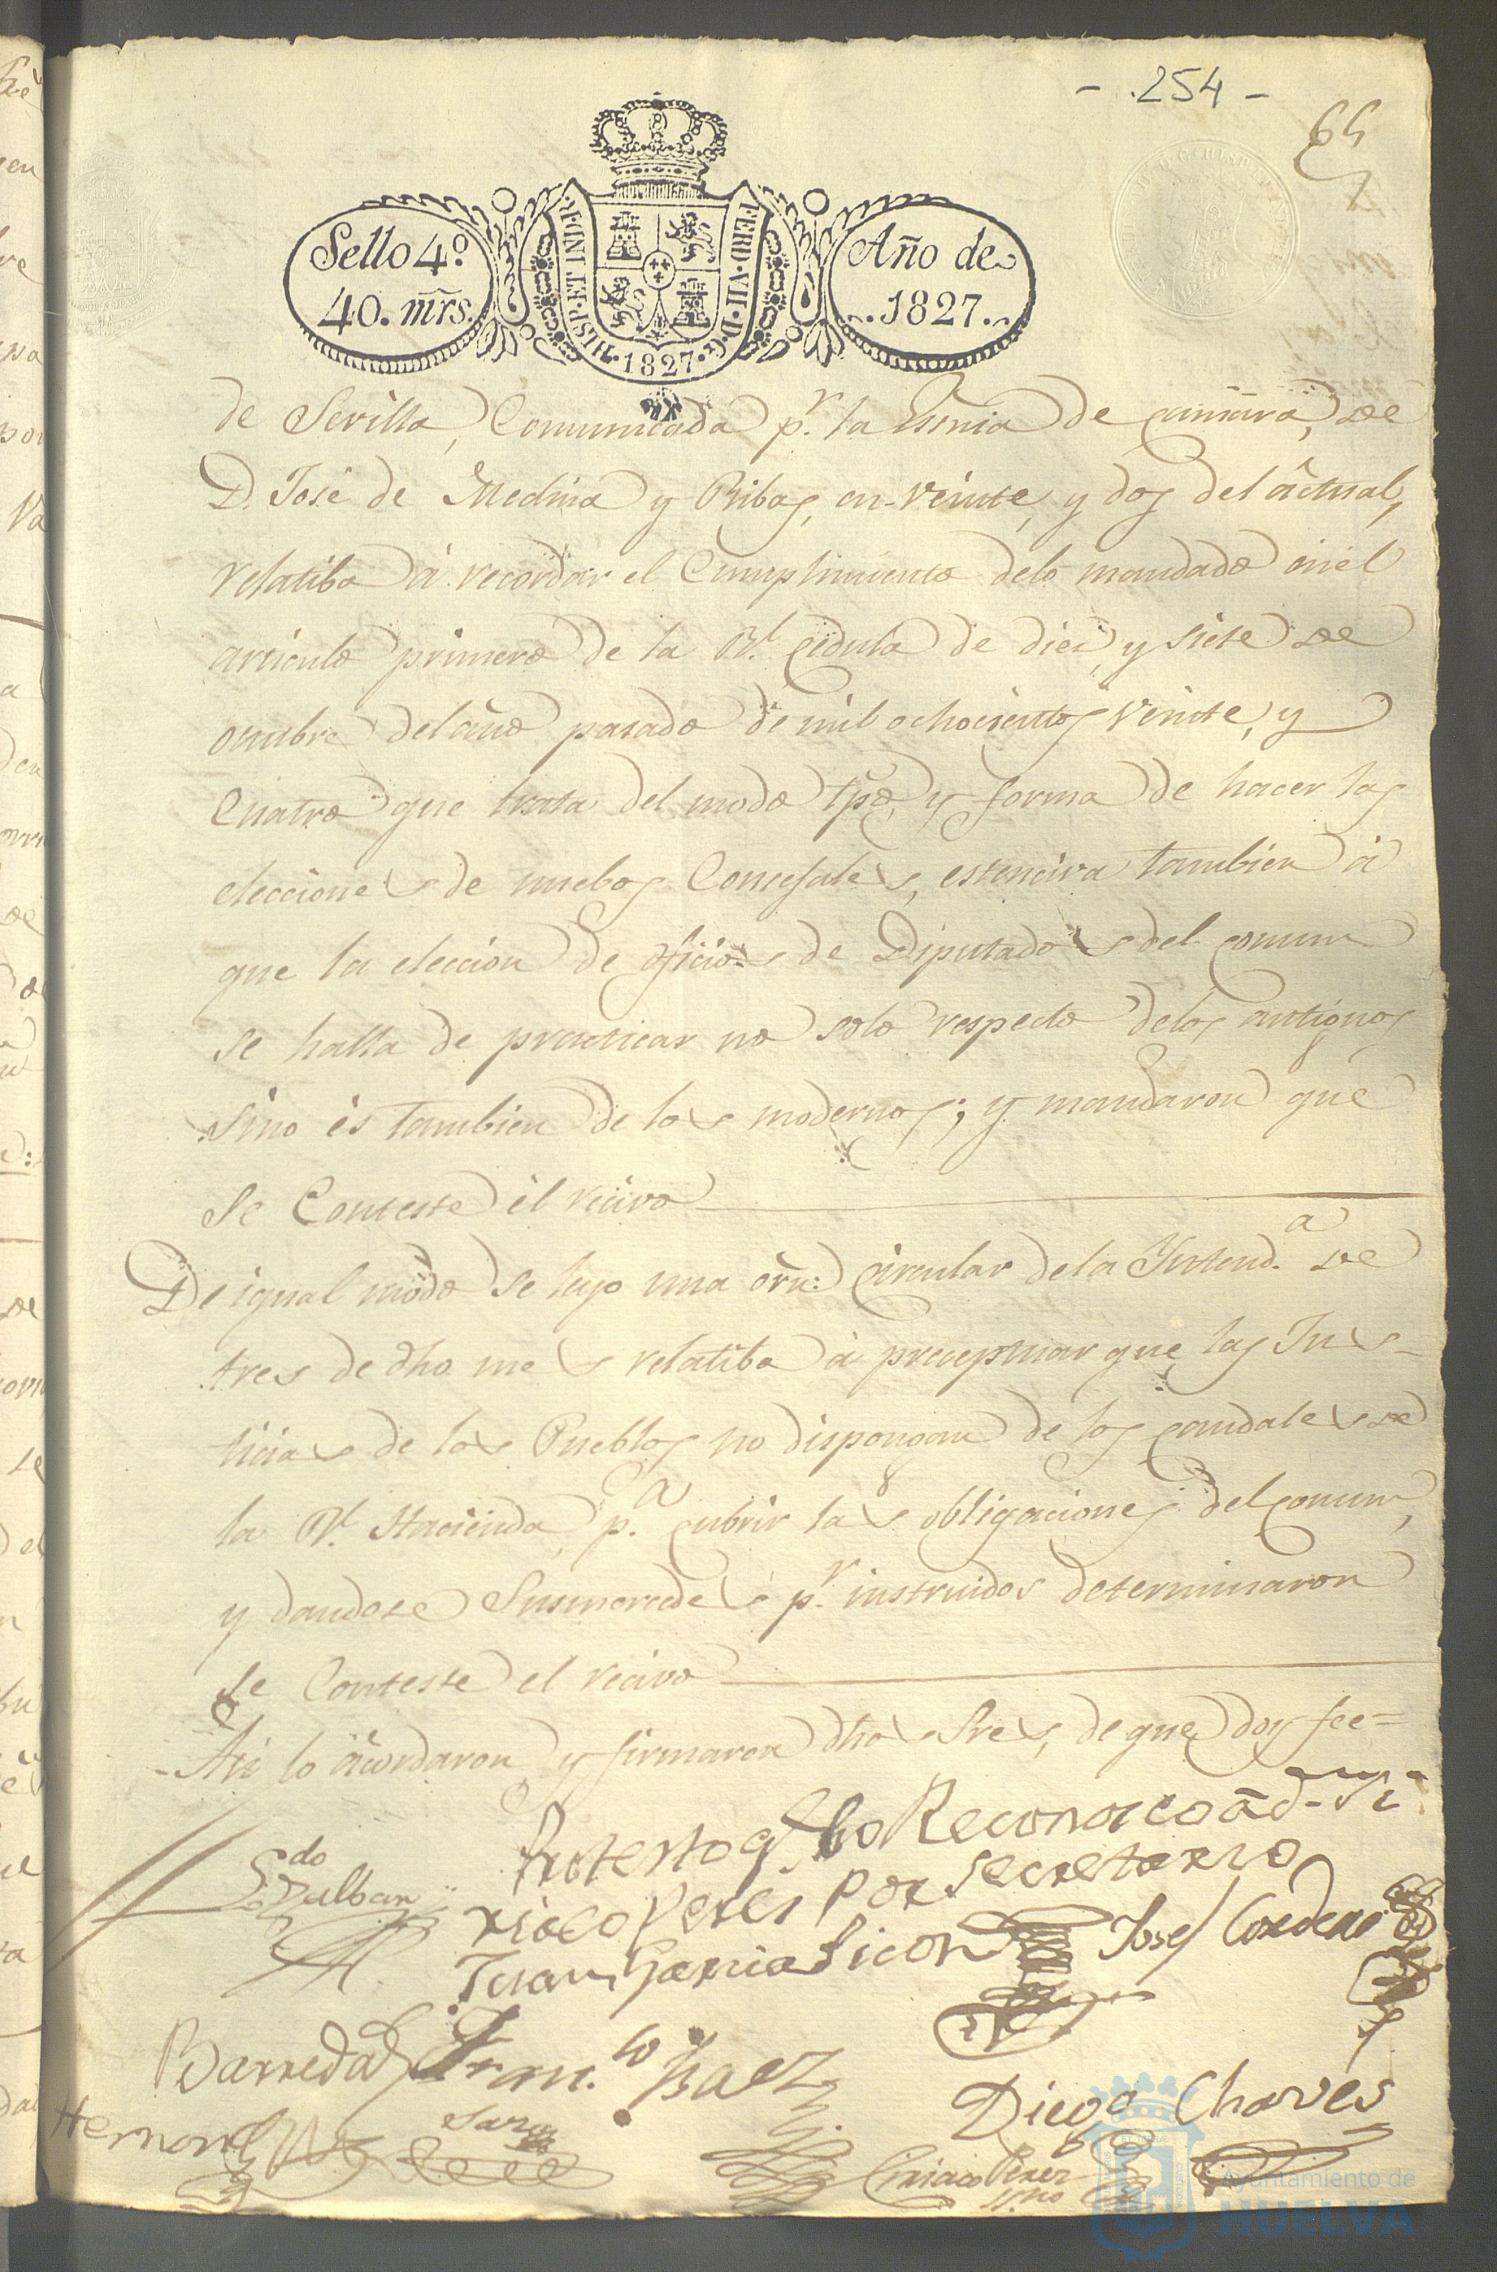 - 254 -
65
Sello 4º.
40. mrs.
HISP. ET IND. R.
FERD. VII. D. G.
1827.
Año de
1827.
de Sevilla, Comunicada p.r la Esnia de camara, de
D. José de Medina y Ribas, en veinte, y dos del actual,
relatiba á recordar el Cumplimiento delo mandado en el
articulo primero de la Rl. cedula de diez, y siete de
octubre del año pasado de mil ochocientos veinte, y
Cuatro que trata del modo tpo, y forma de hacer las
elecciones de nuebos Consejales, estensiva tambien á
que la eleccion de oficios de Diputados del comun
se halla de practicar no solo respecto delos antiguos
sino es tambien de los modernos; y mandaron que
se Conteste el recivo
De igual modo se leyo una orn: circular dela Yntend.a de
tres de dho mes relatiba á preceptuar que las Jus-
ticias de los Pueblos no dispongan de los caudales de
la Rl. Hacienda, p.a cubrir las obligaciones del comun,
y dandose Susmercedes p.r instruidos determinaron
se Conteste el recivo
Asi lo acordaron y firmaron dhos Sres, de que doy fee=
Protesto q. no Reconosco á d.n Si
riaco Peres por secretario
Juan Garcia Picon
Josef Cordero
Barreda
Fran.co Baez
Diego Chaves
Hernand
Ciriaco Perez
Ayuntamiento de
HUELVA